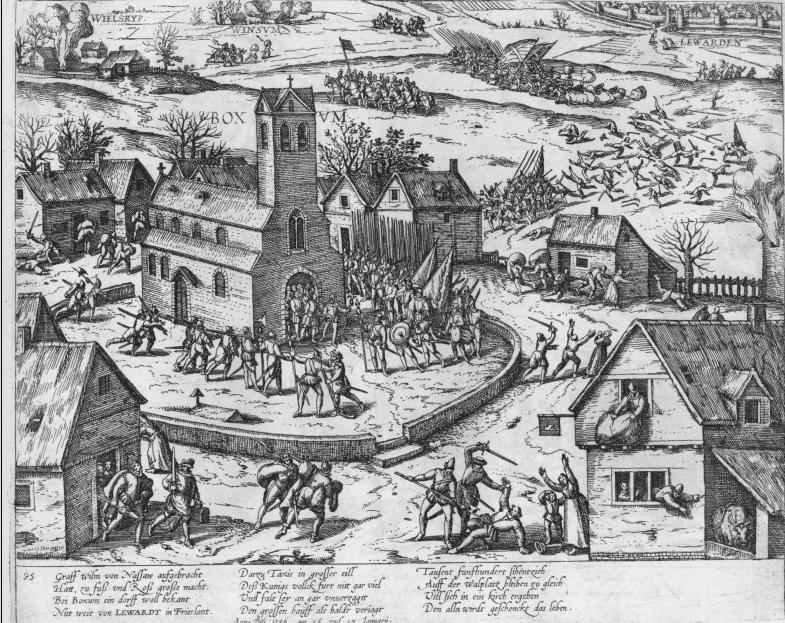 WIELSRYP
WINSVM
LEWARDEN
BOX VM
95
Graff Wilm von Nassaw aufgebracht
Hatt, zu fuß vnd Roß große macht.
Bei Boxum ein dorff woll bekant
Nit weit von LEWARDT in Frieslant.
Darzu Taxis in grosser eill
Deß Kunigs volck furt mit gar viel
Vnd falt ser an gar vnuerzagt
Den grossen hauff als baldt veriagt
Tausent funfhundert
Auff der Walplatz blieben zu gleich
Vill sich in ein kirch ergeben
Den alln wirdt geschenckt das leben.